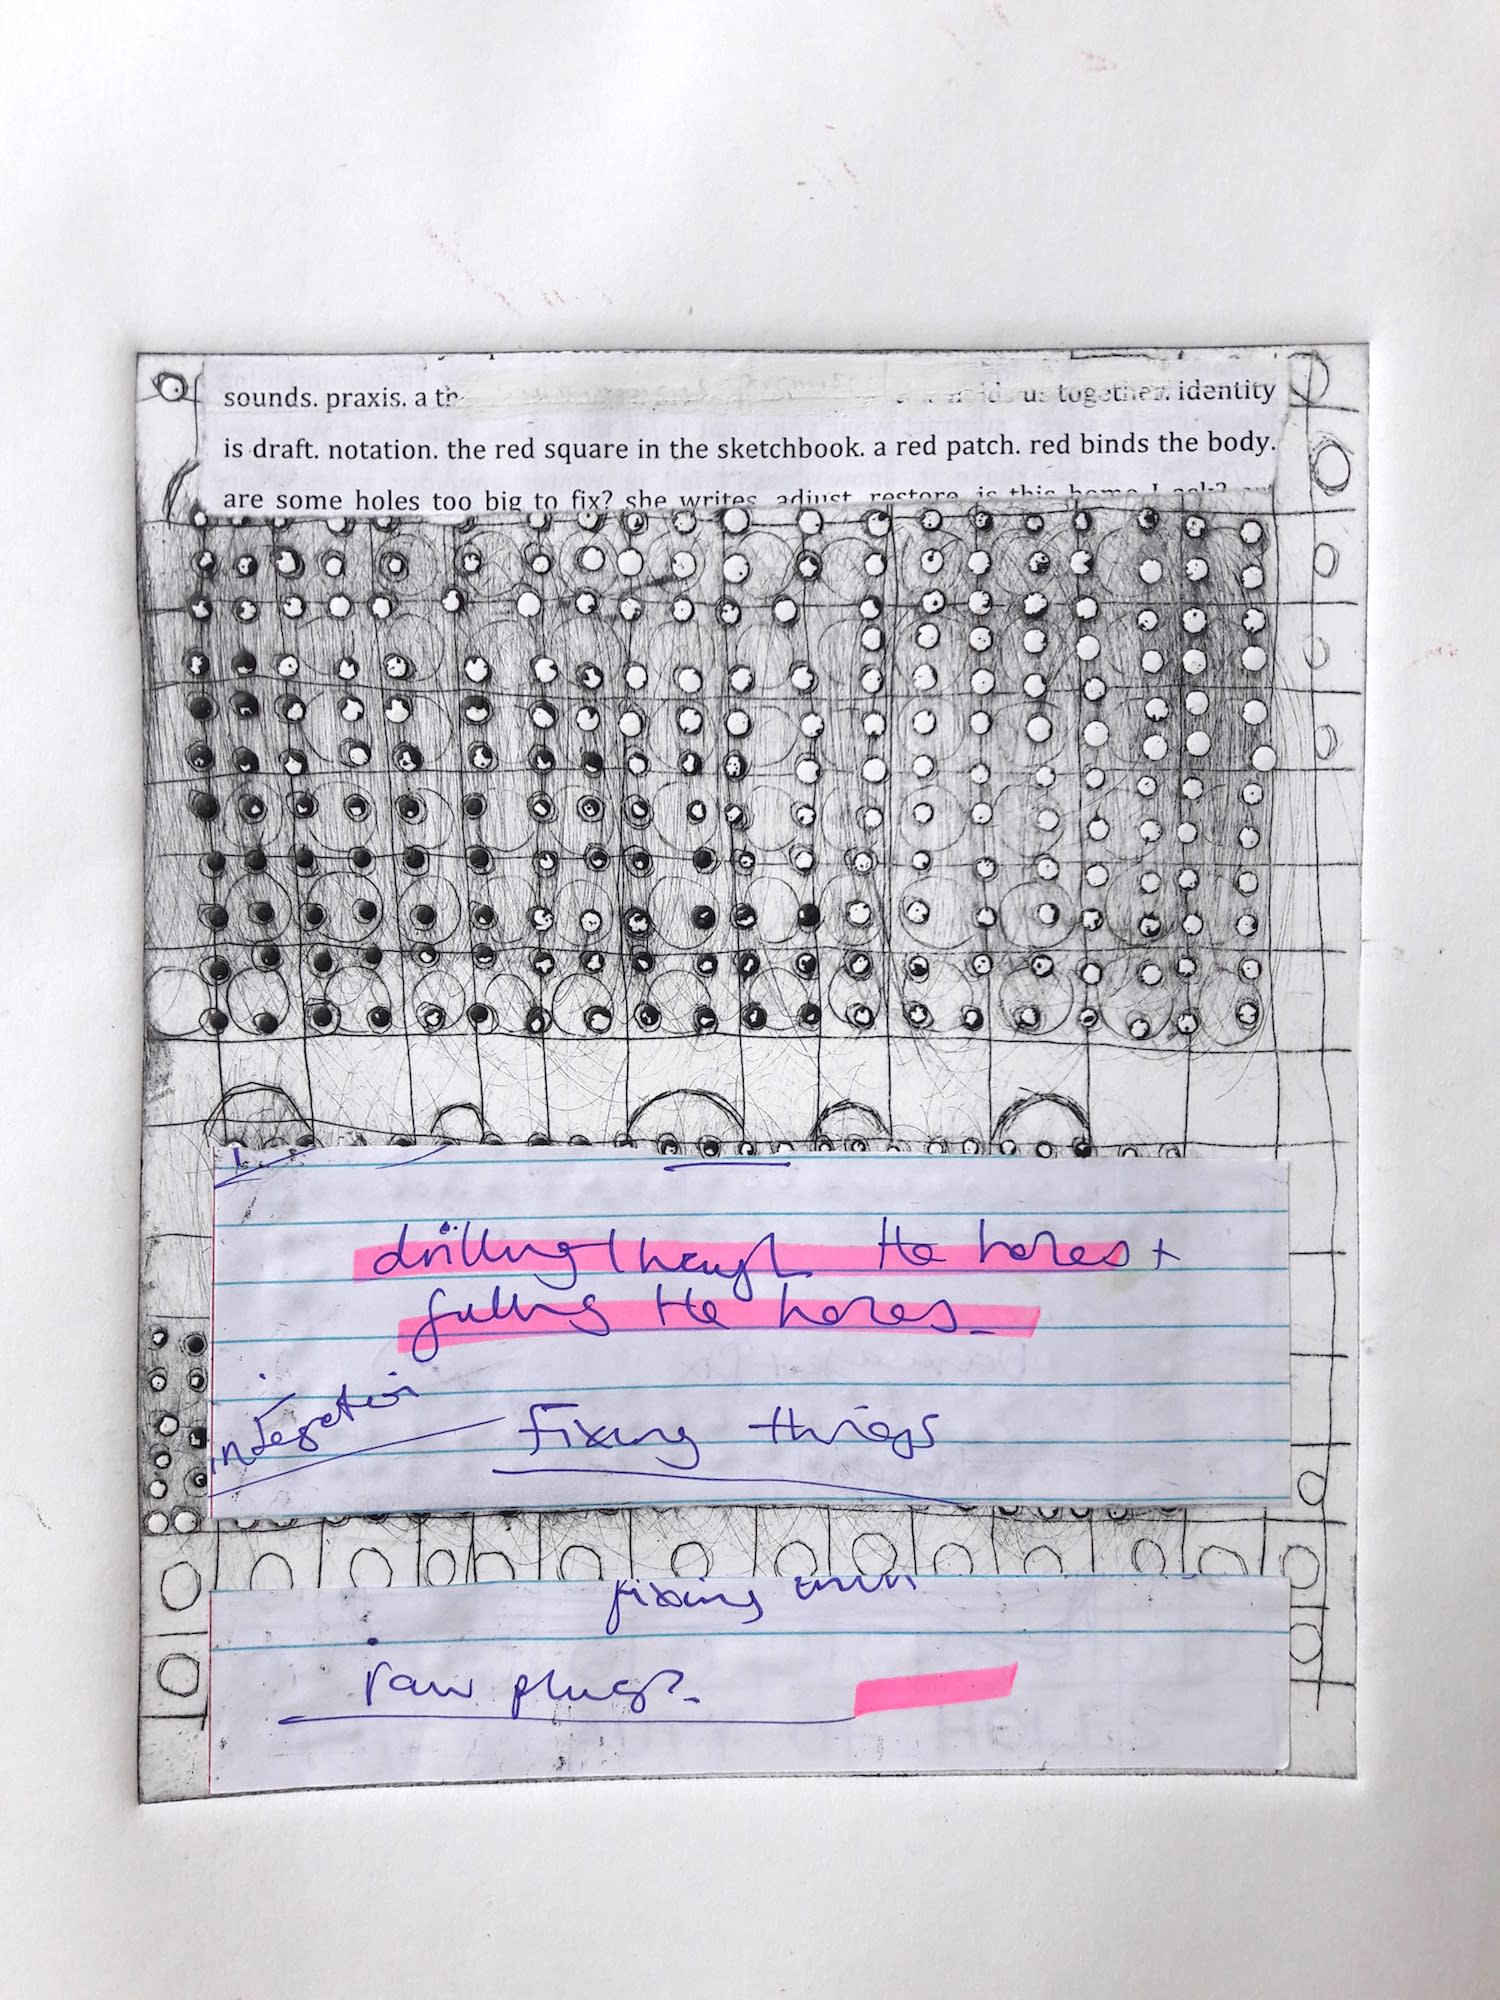 sounds. praxis. a th us together. identity
is draft. notation. the red square in the sketchbook. a red patch. red binds the body.
are some holes too big to fix? she writes. adjust. restore. is this home I ask?
drilling through the holes +
filling the holes.
integration
Fixing things
fixing
raw plugs.